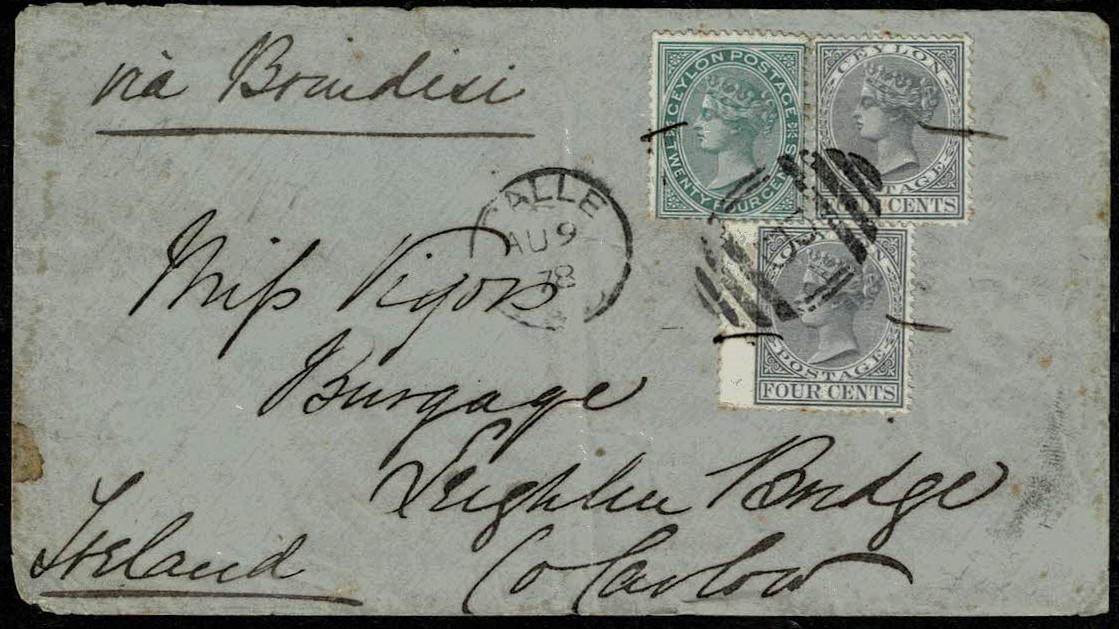 via Brindisi
CEYLON POSTAGE
TWENTY FOUR CENTS
CEYLON
POSTAGE
FOUR CENTS
GALLE
AU 9
78
POSTAGE
FOUR CENTS
Miss Vigors
Burgage
Leighlin Bridge
Co Carlow
Ireland